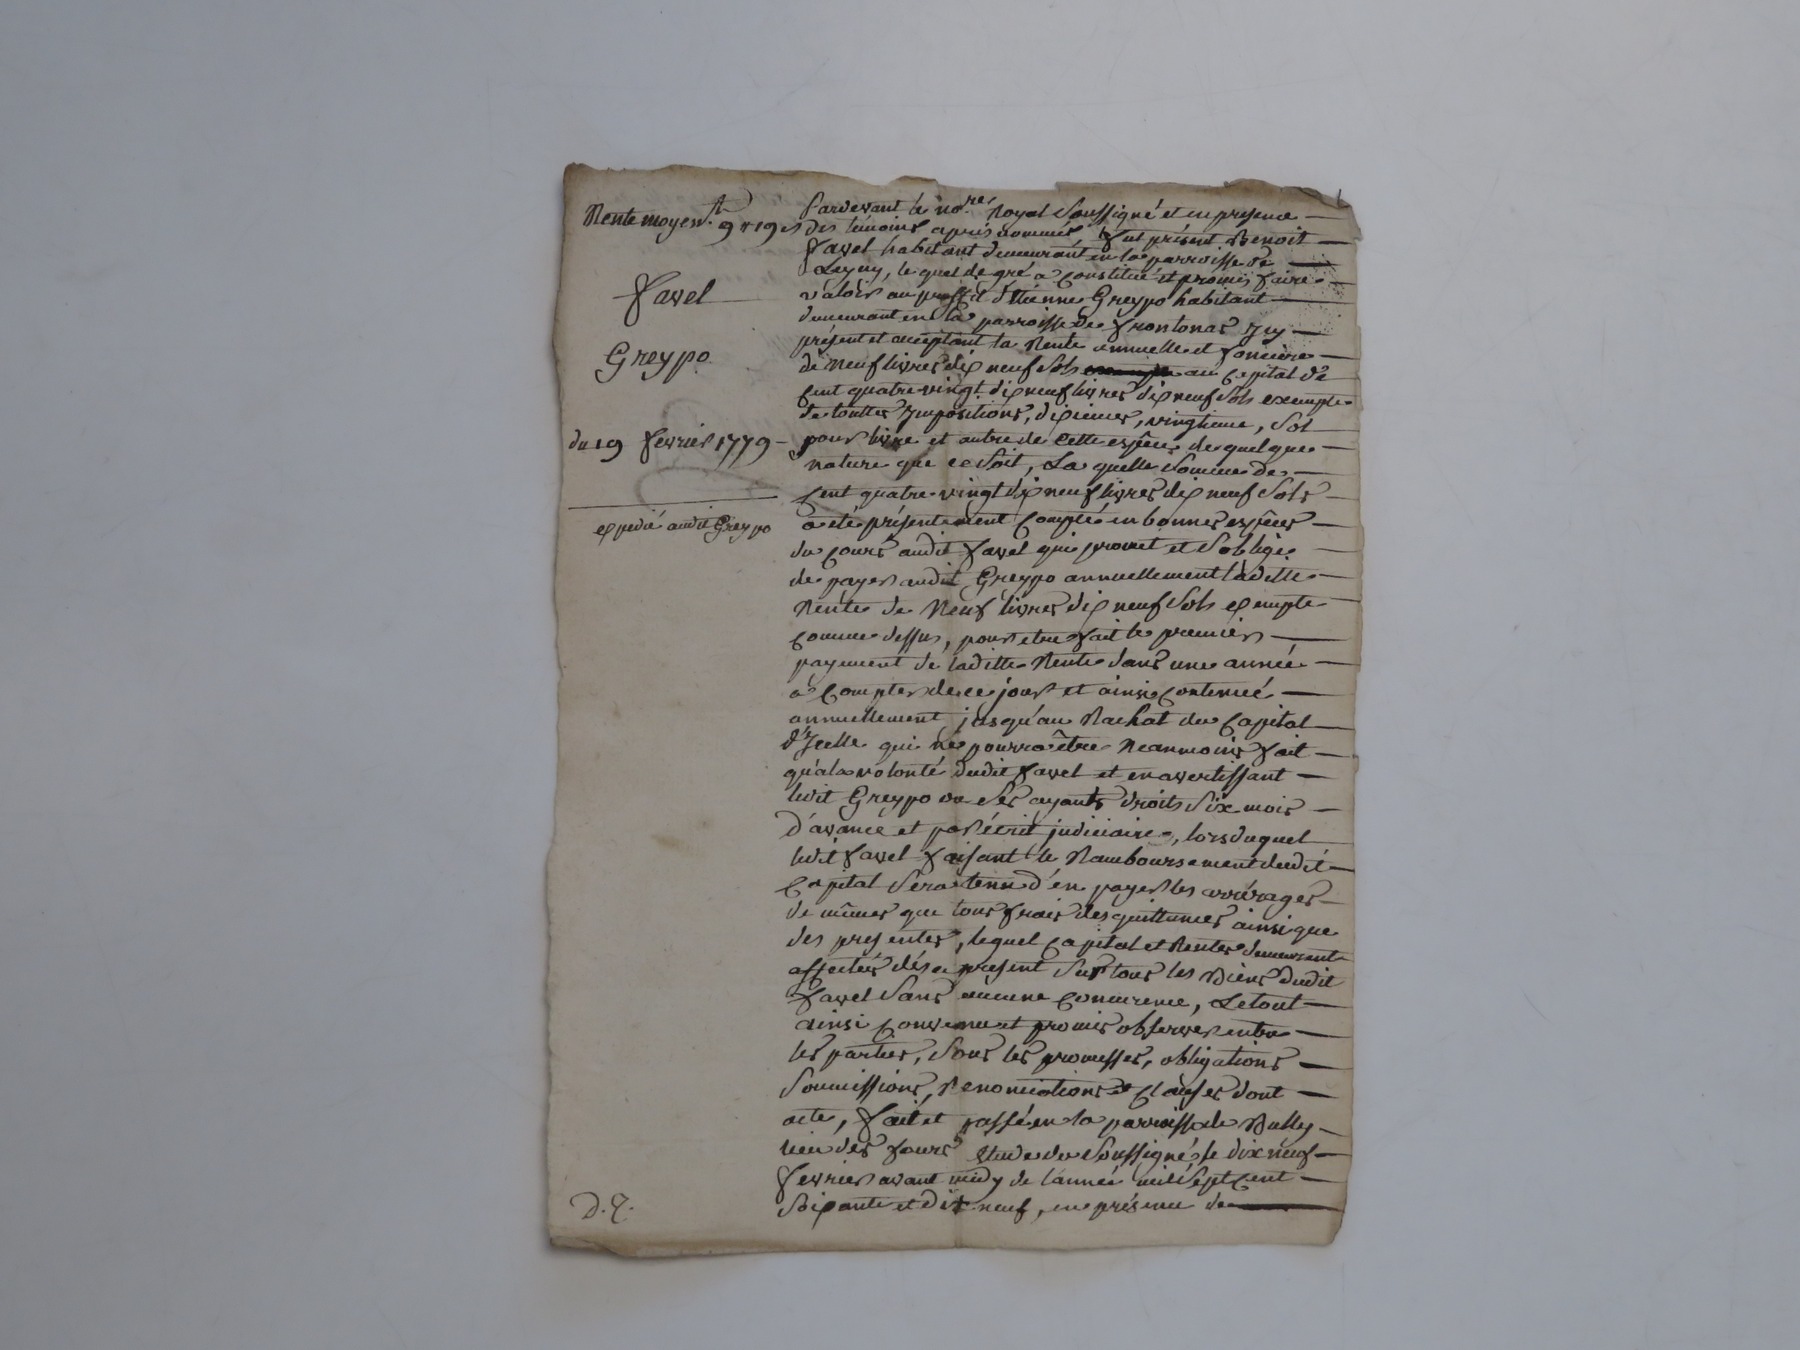 Rente moyen.t 9 # 19 s
Favel
Greypo
du 19 fevrier 1779
expedié audit Greypo
Pardevant le no.re Royal Soussigné et en presence
des témoins après nommés fut présent Benoit
favel habitant demeurant en la parroisse de
Legny, le quel de gré a constitué et promis faire
valoir au proffit d'Etienne Greypo habitant
demeurant en la parroisse de frontonas Icy
présent et acceptant la Rente annuelle et fonciere
de Neuf livres dix neuf Sols au Capital de
Cent quatre-vingt dix neuf livres dix neuf Sols exempte
de touttes Impositions, dixiemes, vingtieme, Sol
pour livre et autre de cette espèce de quelque
nature que ce soit, La quelle Somme de
Cent quatre-vingt dix neuf livres dix neuf Sols
a eté présentement Comptée en bonnes espèces
du cours audit favel qui promet et s'oblige
de payer audit Greypo annuellement ladille
Rente de Neuf livres dix neuf Sols exempte
comme dessus, pour etre fait le premier
payement de laditte Rente dans une année
a Compter de ce jour et ainsi Continué
annuellement jusqu'au Rachat du Capital
d'Icelle qui ne pourra être Neanmoins fait
qu'a la volonté dudit favel et en avertissant
ledit Greypo ou Ses ayants droits Six mois
d'avance et par écrit judiciaire, lors duquel
ledit favel faisant le Ramboursement dudit
Capital Sera tenu d'en payer les arrérages
de mêmes que tous frais des quittances ainsi que
des presentes, lequel Capital et Rentes demeurent
affectés dés a present Sur tous les Biens dudit
favel Sans aucune Concurence, Le tout
ainsi Convenu et promis observer entre
les parties, Sous les promesses, obligations
Soumissions, Renonciations et Clauses dont
acte, fait et passé en la parroisse de Bully
lieu des fours Etude du Soussigné le dix neuf
fevrier avant midy de l'année mil Sept Cent
Soixante et dix neuf, en présence de